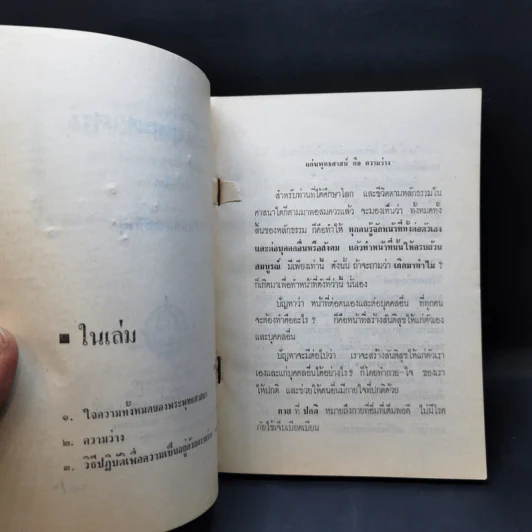 ■ ในเล่ม
๑. ใจความทั้งหมดของพระพุทธศาสนา
๒. ความว่าง
๓. วิธีปฏิบัติเพื่อความเป็นอยู่ด้วยความว่าง
แก่นพุทธศาสน์ คือ ความว่าง
สำหรับท่านที่ได้ศึกษาโลก และชีวิตตามหลักธรรมใน
ศาสนาใดก็ตามมาพอสมควรแล้ว จะมองเห็นว่า ทั้งหมดทั้ง
สิ้นของหลักธรรม ก็คือทำให้ ทุกคนรู้จักหน้าที่ทั้งต่อตัวเอง
และต่อบุคคลอื่นหรือสังคม แล้วทำหน้าที่นั้นให้ครบถ้วน
สมบูรณ์ มีเพียงเท่านี้ ดังนั้น ถ้าจะถามว่า เกิดมาทำไม ?
ก็เกิดมาเพื่อทำหน้าที่ดังที่ว่านี้ นั่นเอง
ปัญหาว่า หน้าที่ต่อตนเองและต่อบุคคลอื่น ที่ทุกคน
จะต้องทำคืออะไร ? ก็คือหน้าที่สร้างสันติสุขให้แก่ตัวเอง
และบุคคลอื่น
ปัญหาจะมีต่อไปว่า เราจะสร้างสันติสุขให้แก่ตัวเรา
เองและแก่บุคคลอื่นได้อย่างไร ? ก็โดยทำกาย-ใจ ของเรา
ให้ปกติ และช่วยให้คนอื่นมีกายใจที่ปกติด้วย
กาย ที่ ปกติ หมายถึงกายที่อิ่มที่เต็มพอดี ไม่มีโรค
ภัยไข้เจ็บเบียดเบียน